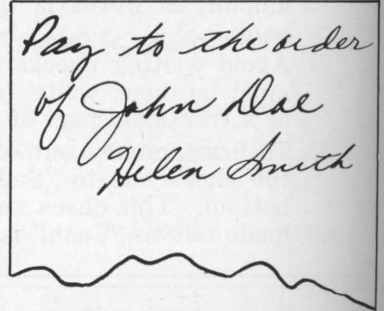 Pay to the order
of John Doe
Helen Smith